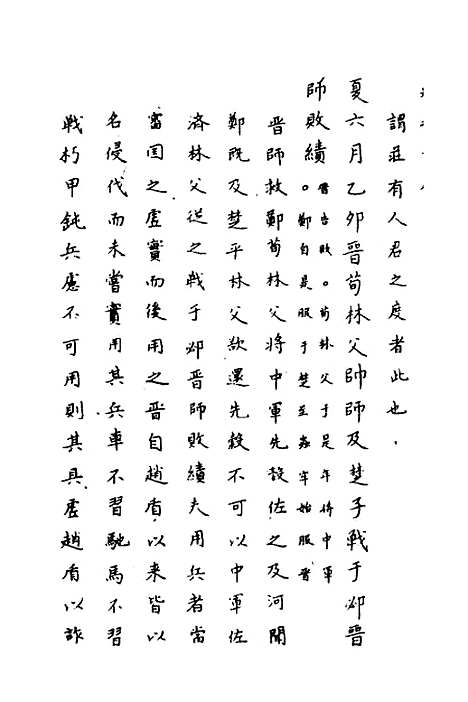 謂莊有人君之度者此也
夏六月乙卯晉荀林父帥師及楚子戰于邲晉
師敗績。晉告敗。荀林父于是年將中軍
鄭自是服于楚至襄年始服晉
晉師救鄭荀林父將中軍先縠佐之及河聞
鄭既及楚平林父欲還先縠不可以中軍佐
濟林父從之戰于邲晉師敗績夫用兵者當
審国之虛實而後用之晉自趙盾以来皆以
名侵伐而未嘗實用其兵車不習馳馬不習
戰朽甲鈍兵慮不可用則其具虛趙盾以詐